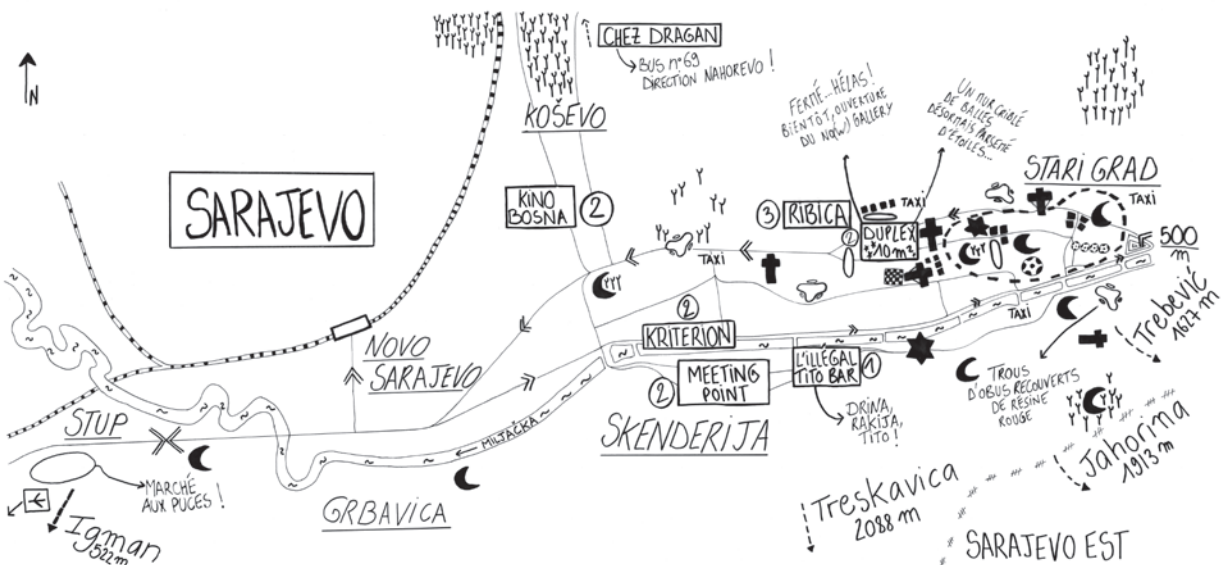 N
SARAJEVO
CHEZ DRAGAN
BUS n°69
DIRECTION NAHOREVO !
KOŠEVO
FERMÉ... HÉLAS !
BIENTÔT, OUVERTURE
DU NO(W) GALLERY
UN MUR CRIBLÉ
DE BALLES
DÉSORMAIS PARSEMÉ
D'ÉTOILES...
STARI GRAD
KINO
BOSNA
2
3
RIBICA
TAXI
TAXI
2
DUPLEX
10 m²
TAXI
500
m
Trebević
1627 m
2
KRITERION
TAXI
NOVO
SARAJEVO
MEETING
POINT
2
L'ILLÉGAL
TITO BAR
1
DRINA,
RAKIJA,
TITO !
TROUS
D'OBUS RECOUVERTS
DE RÉSINE
ROUGE
STUP
MILJAČKA
SKENDERIJA
Jahorina
1913 m
MARCHÉ
AUX PUCES !
GRBAVICA
Treskavica
2088 m
Igman
522 m
SARAJEVO EST